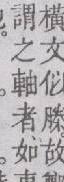 橫文似縢故
謂之軸者如